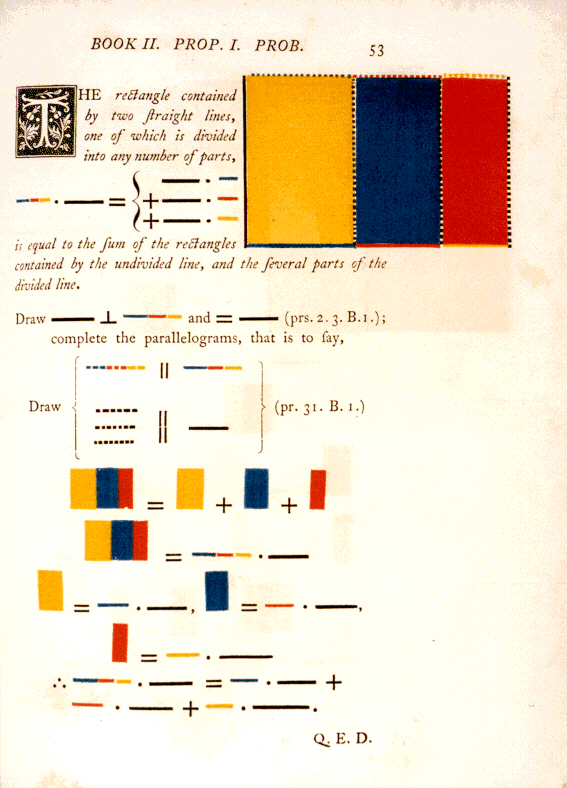 BOOK II. PROP. I. PROB.
53
THE rectangle contained
by two ſtraight lines,
one of which is divided
into any number of parts,
· = { ·
+ ·
+ ·
is equal to the ſum of the rectangles
contained by the undivided line, and the ſeveral parts of the
divided line.
Draw ⊥ and = (prs. 2. 3. B.1.);
complete the parallelograms, that is to ſay,
Draw { || || } (pr. 31. B. 1.)
= + +
= ·
= · , = · ,
= ·
∴ · = · +
· + · .
Q. E. D.